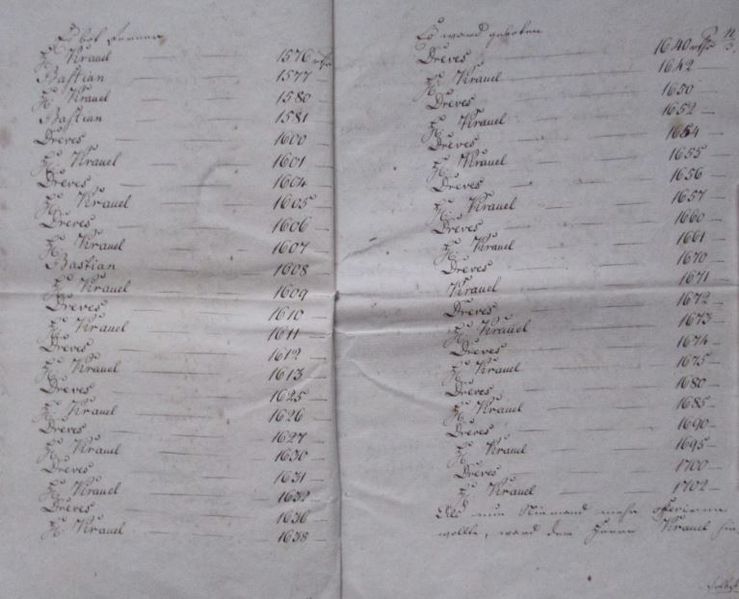 Es bot ferner
H. Krauel 1576 rthr
Bastian 1577
H. Krauel 1580
Bastian 1581
Dreves 1600
H. Krauel 1601
Dreves 1604
H. Krauel 1605
Dreves 1606
H. Krauel 1607
Bastian 1608
H. Krauel 1609
Dreves 1610
H. Krauel 1611
Dreves 1612
H. Krauel 1613
Dreves 1625
H. Krauel 1626
Dreves 1627
H. Krauel 1630
Dreves 1631
H. Krauel 1632
Dreves 1636
H. Krauel 1638
Es ward geboten
Dreves 1640 rthr
H. Krauel 1642
Dreves 1650
H. Krauel 1652
Dreves 1654
H. Krauel 1655
Dreves 1656
H. Krauel 1657
Dreves 1660
H. Krauel 1661
Dreves 1670
Krauel 1671
Dreves 1672
H. Krauel 1673
Dreves 1674
H. Krauel 1675
Dreves 1680
H. Krauel 1685
Dreves 1690
H. Krauel 1695
Dreves 1700
H. Krauel 1702
Als nun Niemand mehr offeriren
wollte, ward dem Herrn Krauel